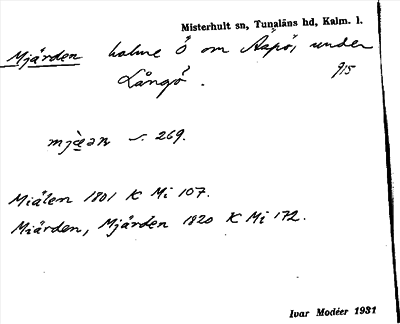 Misterhult sn, Tunaläns hd, Kalm. l.
Mjärden holme Ö om Äspö, under
Långö. 915
mjæ̀ən s. 269.
Miälen 1801 K Mi 107.
Miärden, Mjärden 1820 K Mi 172.
Ivar Modéer 1931